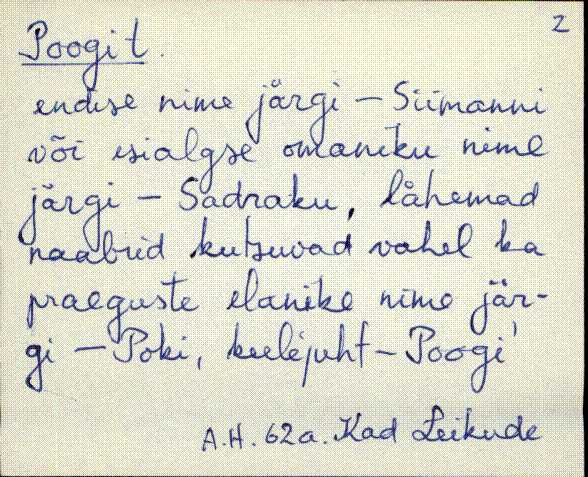 2
Poogit.
endise nime järgi – Siimanni
või esialgse omaniku nime
järgi – Sadraku, lähemad
naabrid kutsuvad vahel ka
praeguste elanike nime jär-
gi – Poki, keelejuht – Poogi
A.H. 62a. Kad Leikude